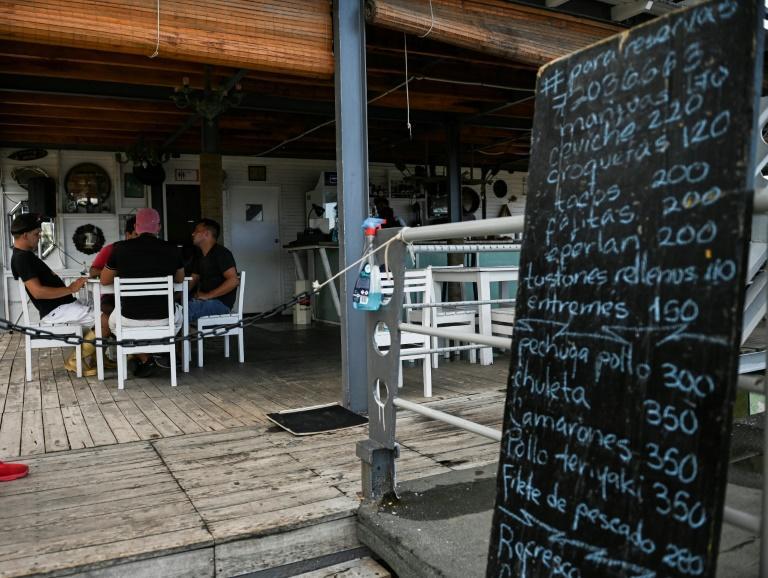 # para reservas
72036663
mariquas 170
ceviche 220
croquetas 120
tacos 200
fajitas 200
eperlan 200
tostones rellenos 110
entremes 150
pechuga pollo 300
chuleta 350
Camarones 350
Pollo teriyaki 350
Filete de pescado 280
Refresco